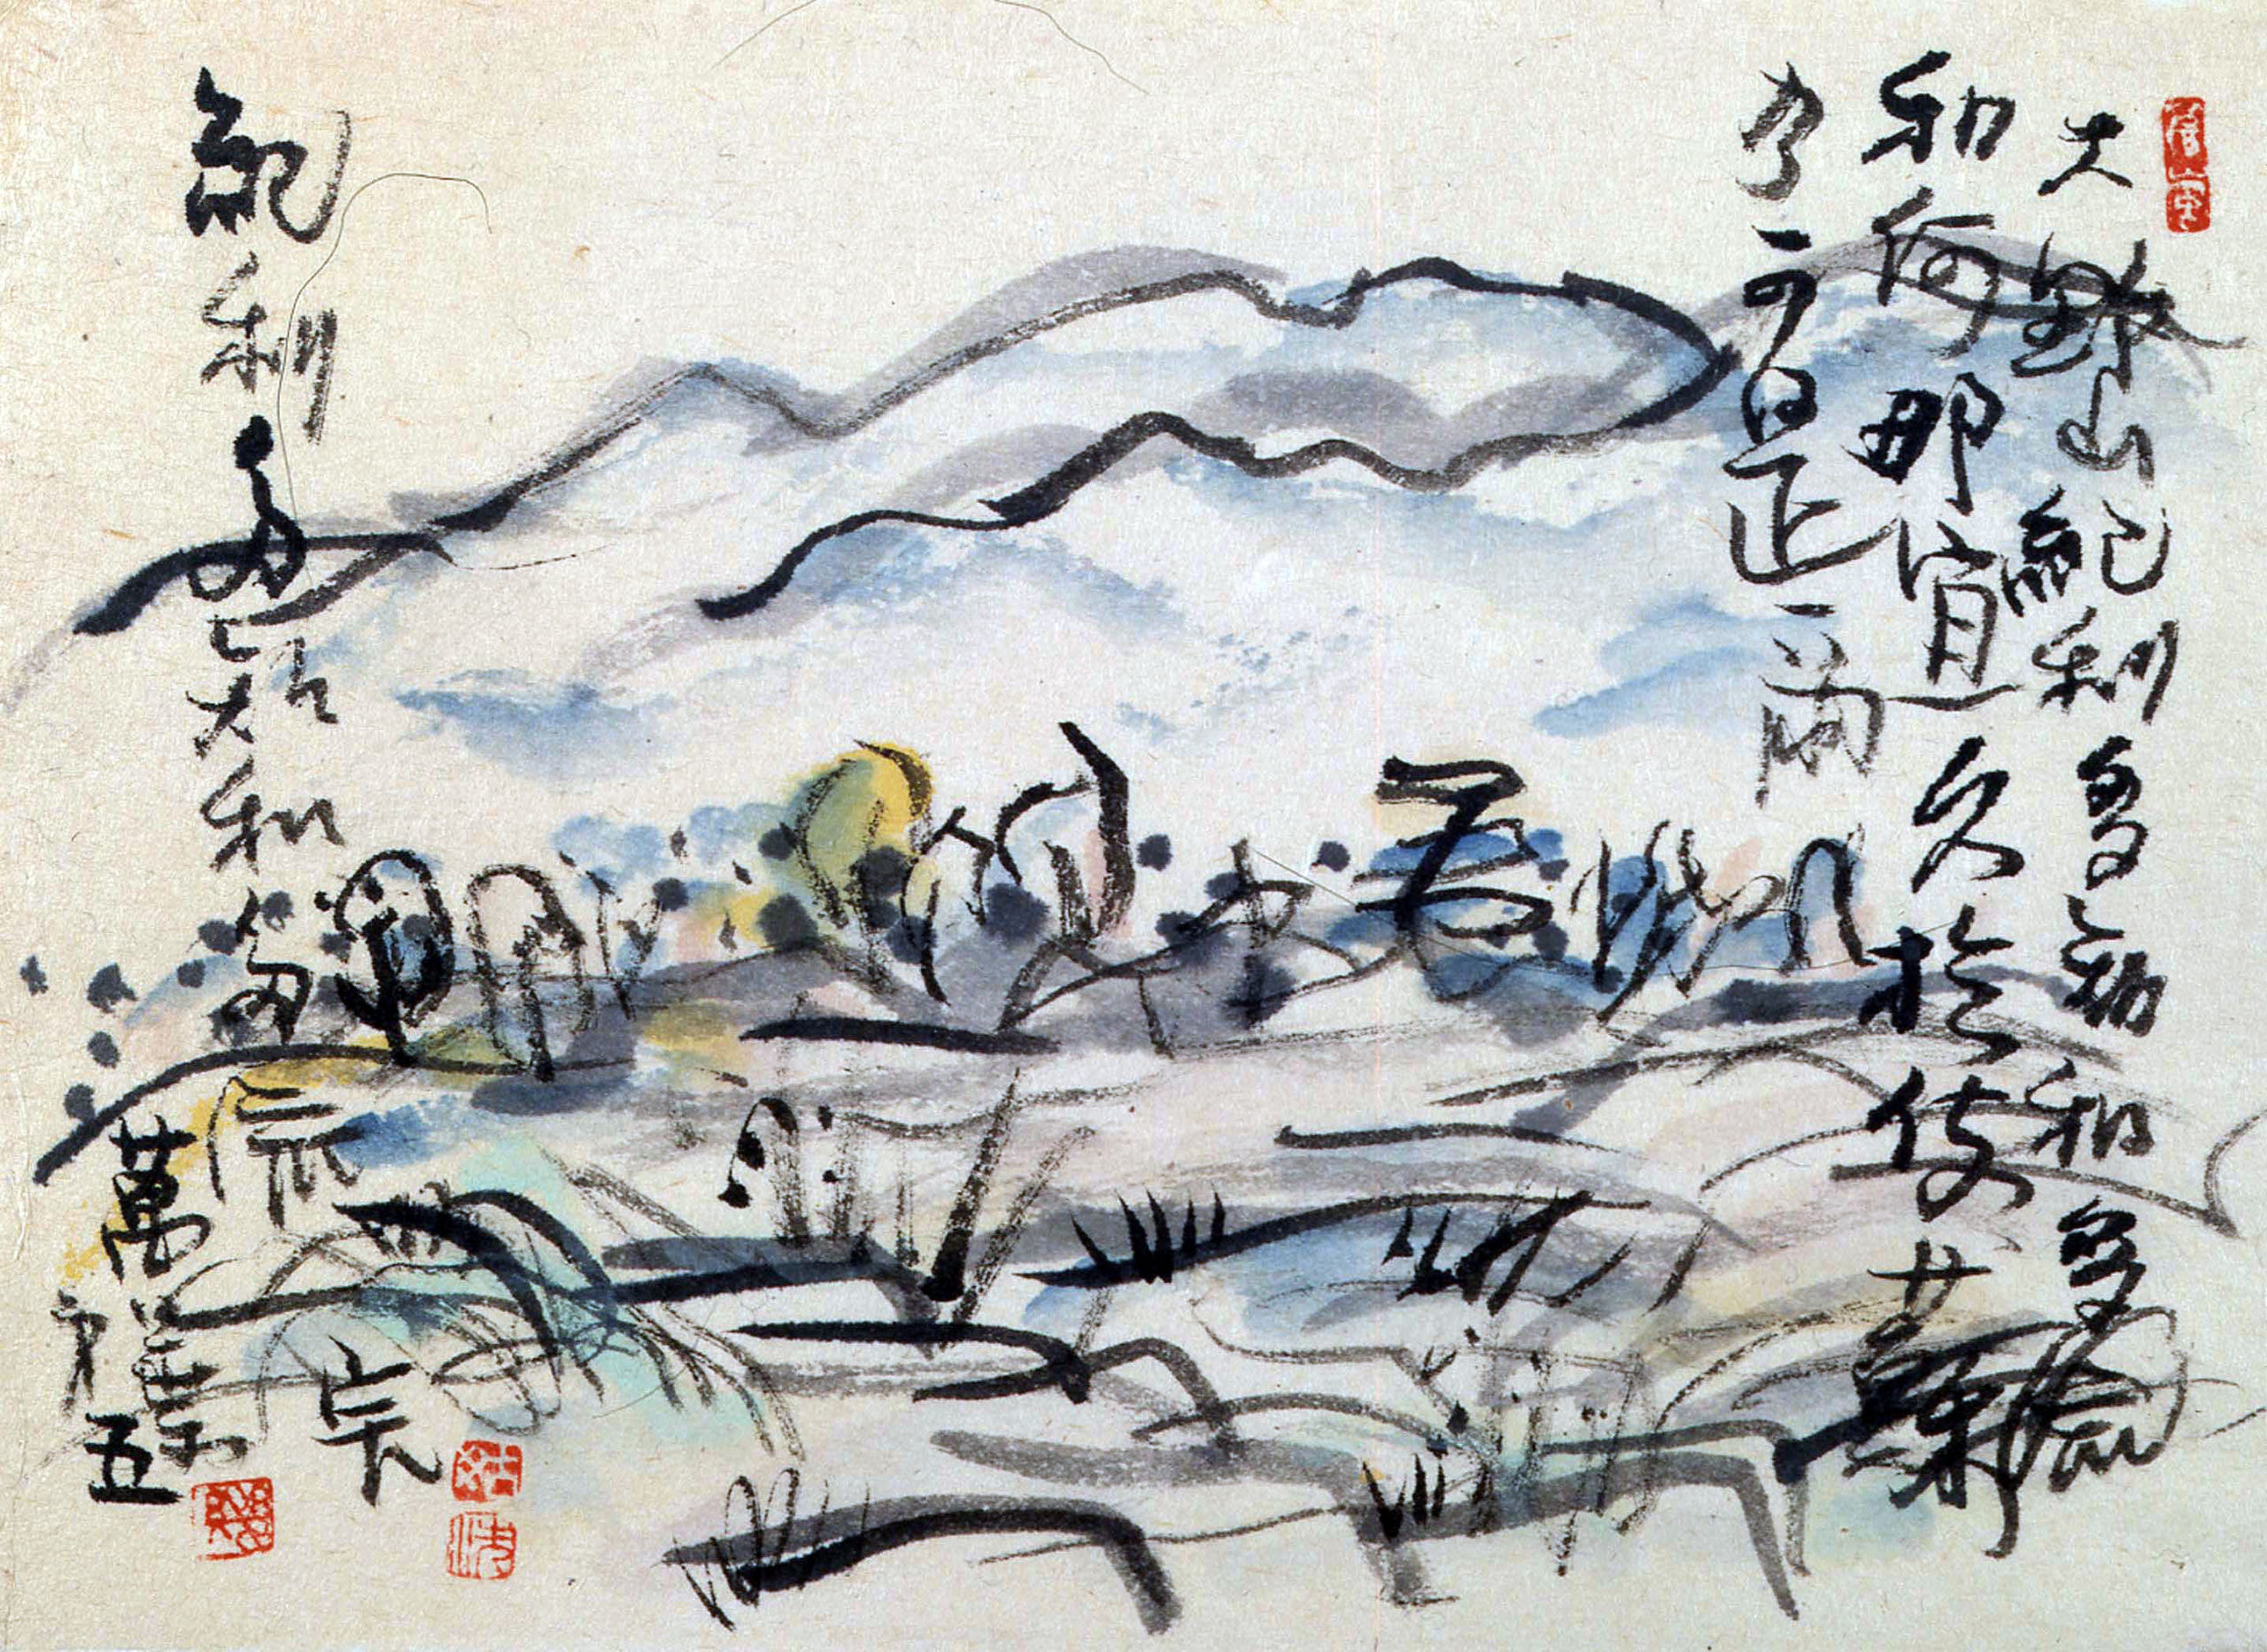 大野山紀利多知和多流
和何那宜久於伎蘇
乃可是爾
紀利多知和多流
萬葉
才五